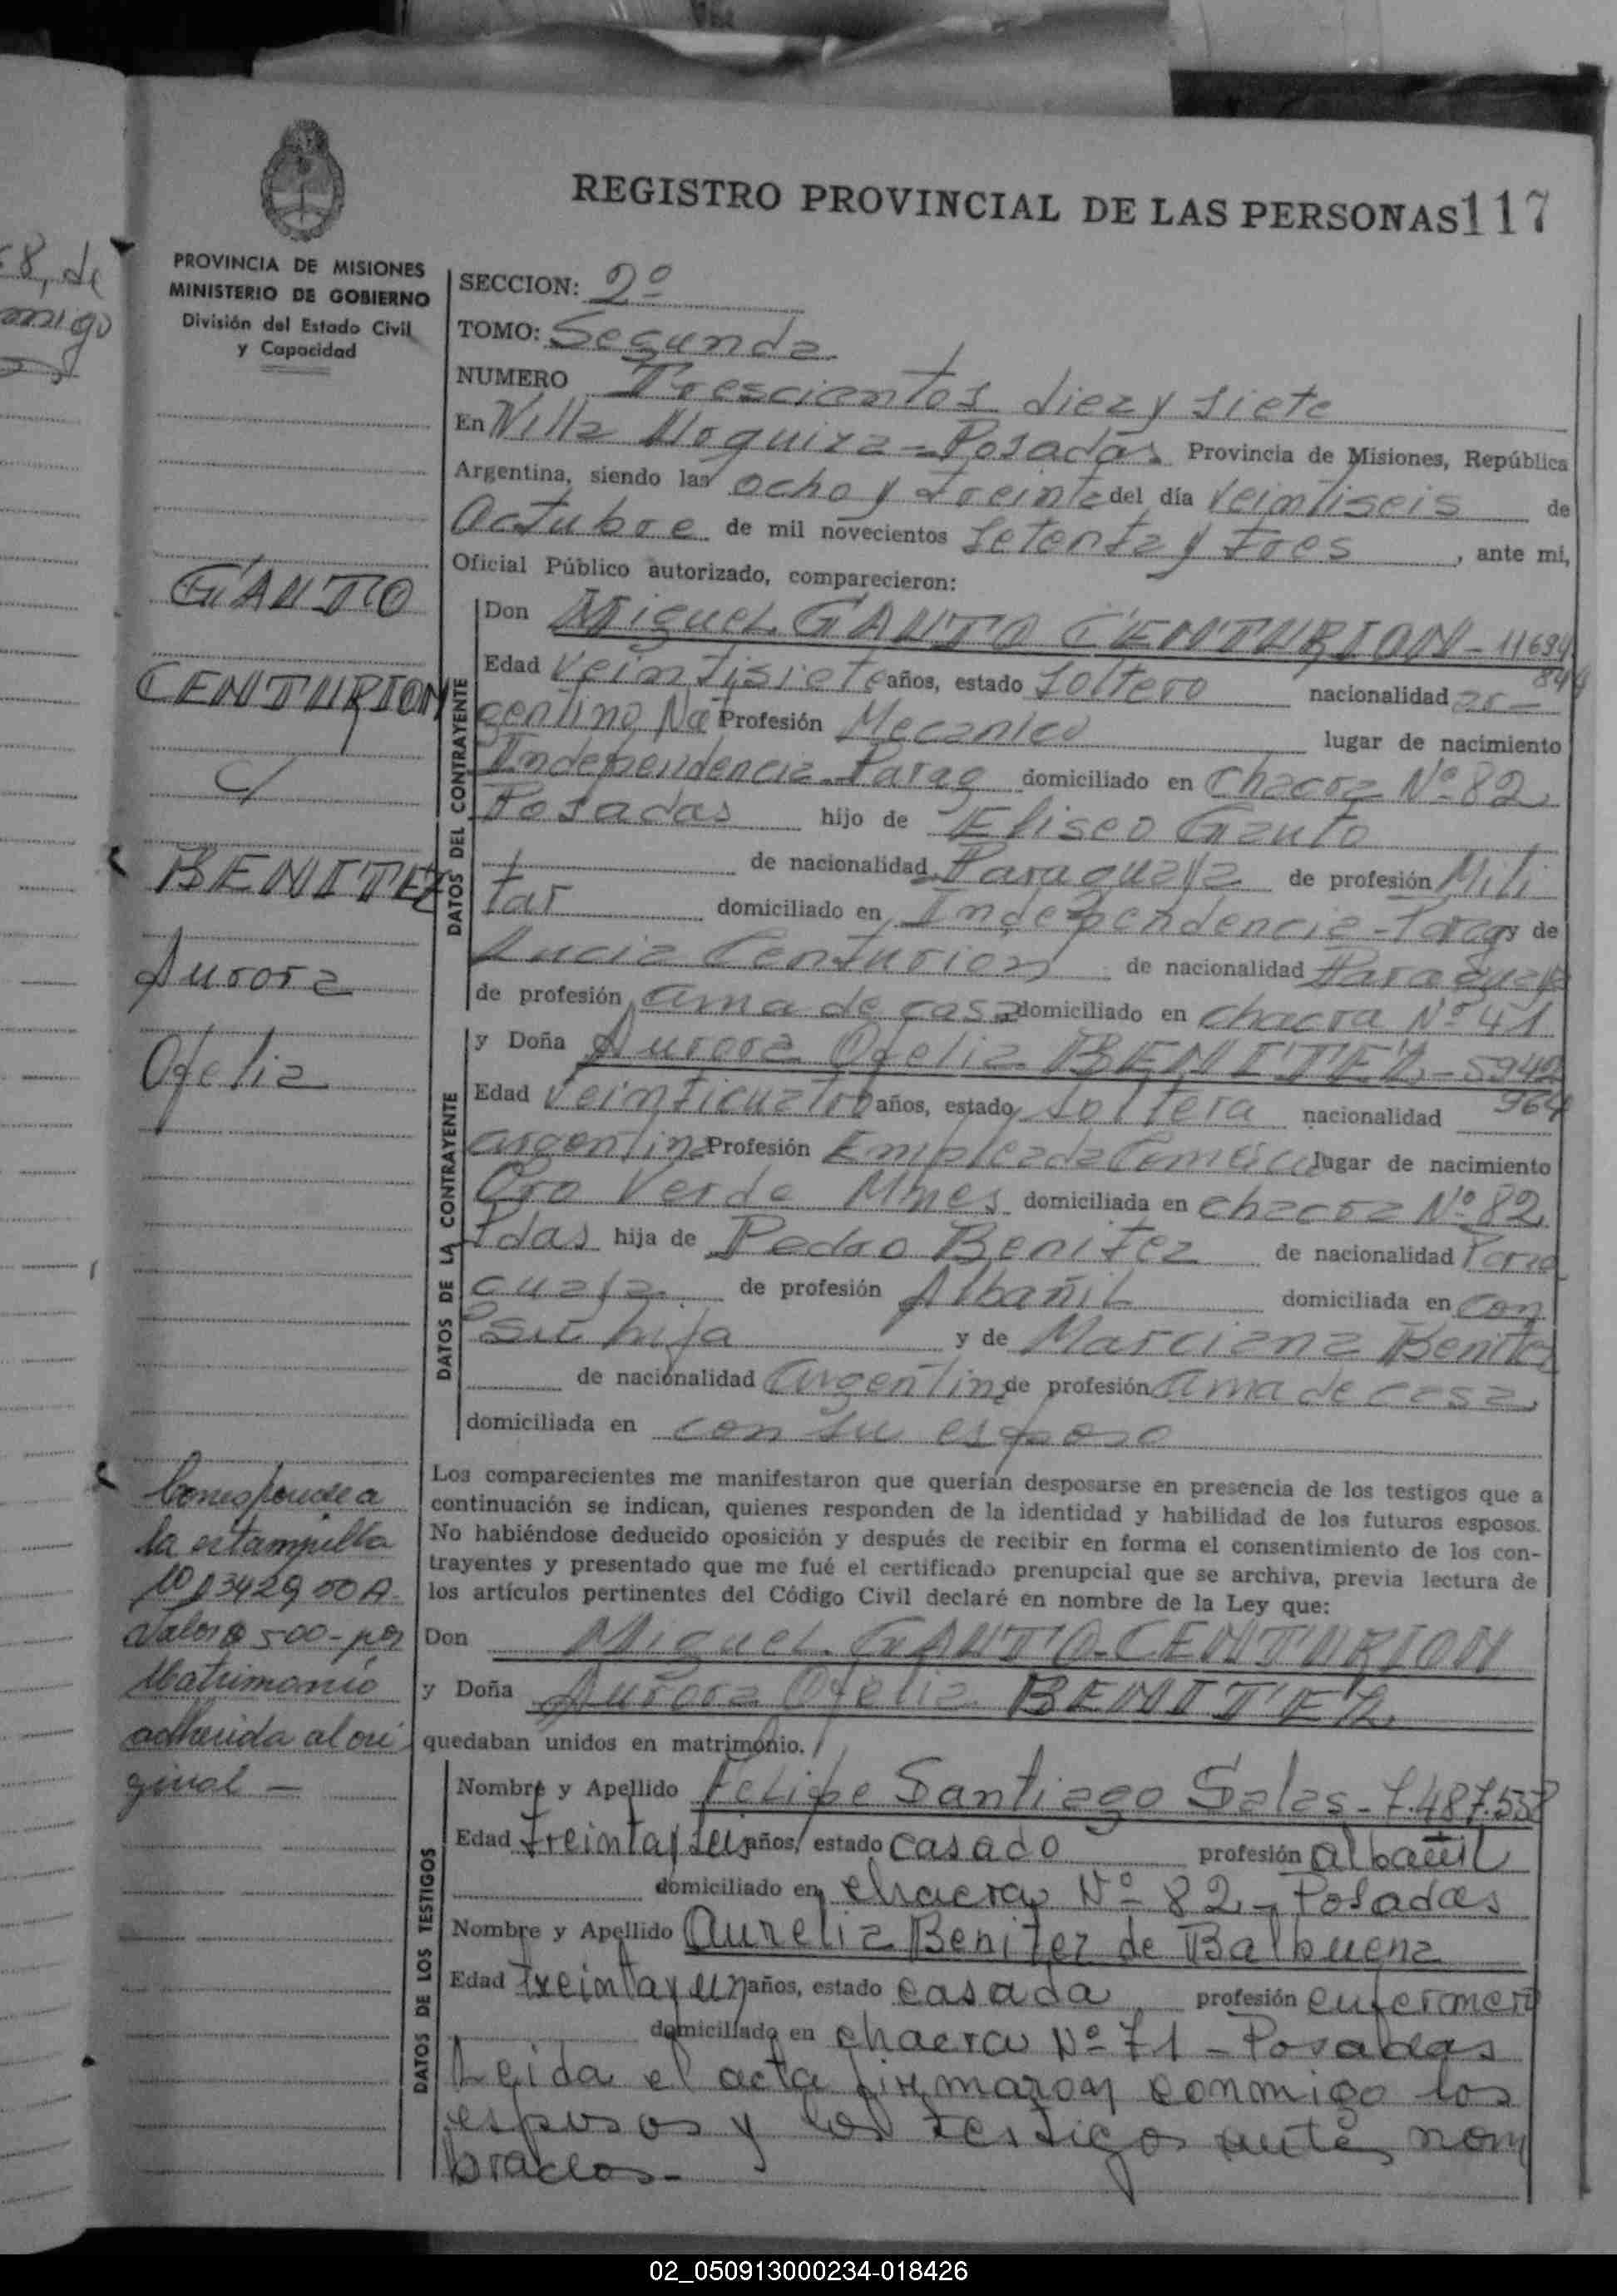 REGISTRO PROVINCIAL DE LAS PERSONAS 117
PROVINCIA DE MISIONES
MINISTERIO DE GOBIERNO
División del Estado Civil
y Capacidad
8, de
migo
GAUTO
CENTURION
BENITEZ
Aurora
Ofelia
Corresponde a
la estampilla
Valor $ 500 - por
Matrimonio
adherida al ori
ginal -
SECCION: 2º
TOMO: Segunda
NUMERO Trescientos diez y siete
En Villa Noguira - Posadas Provincia de Misiones, República
Argentina, siendo las ocho y treinta del día veintiseis de
Octubre de mil novecientos setenta y tres, ante mi,
Oficial Público autorizado, comparecieron:
DATOS DEL CONTRAYENTE
Don Miguel GAUTO CENTURION - 11694
844
Edad veintisiete años, estado soltero nacionalidad ar-
gentino Na Profesión Mecanico lugar de nacimiento
Independencia Parag domiciliado en Chacra Nº 82
Posadas hijo de Eliseo Gauto
de nacionalidad Paraguaya de profesión Mili
tar domiciliado en Independencia - Parag y de
Lucia Centurion de nacionalidad Paraguaya
de profesión ama de casa domiciliado en chacra Nº 41
DATOS DE LA CONTRAYENTE
y Doña Aurora Ofelia BENITEZ - 5942
964
Edad veinticuatro años, estado soltera nacionalidad
argentina Profesión Empleada Comercio lugar de nacimiento
Oro Verde Mnes domiciliada en chacra Nº 82
Pdas hija de Pedro Benitez de nacionalidad Para
guaya de profesión Albañil domiciliada en con
su hija y de Marciana Benitez
de nacionalidad argentina de profesión ama de casa
domiciliada en con su esposo
Los comparecientes me manifestaron que querían desposarse en presencia de los testigos que a
continuación se indican, quienes responden de la identidad y habilidad de los futuros esposos.
No habiéndose deducido oposición y después de recibir en forma el consentimiento de los con-
trayentes y presentado que me fué el certificado prenupcial que se archiva, previa lectura de
los artículos pertinentes del Código Civil declaré en nombre de la Ley que:
Don Miguel GAUTO-CENTURION
y Doña Aurora Ofelia BENITEZ
quedaban unidos en matrimonio.
DATOS DE LOS TESTIGOS
Nombre y Apellido Felipe Santiago Salas - 7.487.558
Edad treinta y seis años, estado casado profesión albañil
domiciliado en chacra Nº 82 - Posadas
Nombre y Apellido Aurelia Benitez de Balbuena
Edad treinta y un años, estado casada profesión enfermera
domiciliado en chacra Nº 71 - Posadas
Leida el acta firmaron conmigo los
esposos y los testigos ante nom
brados.-
02_050913000234-018426